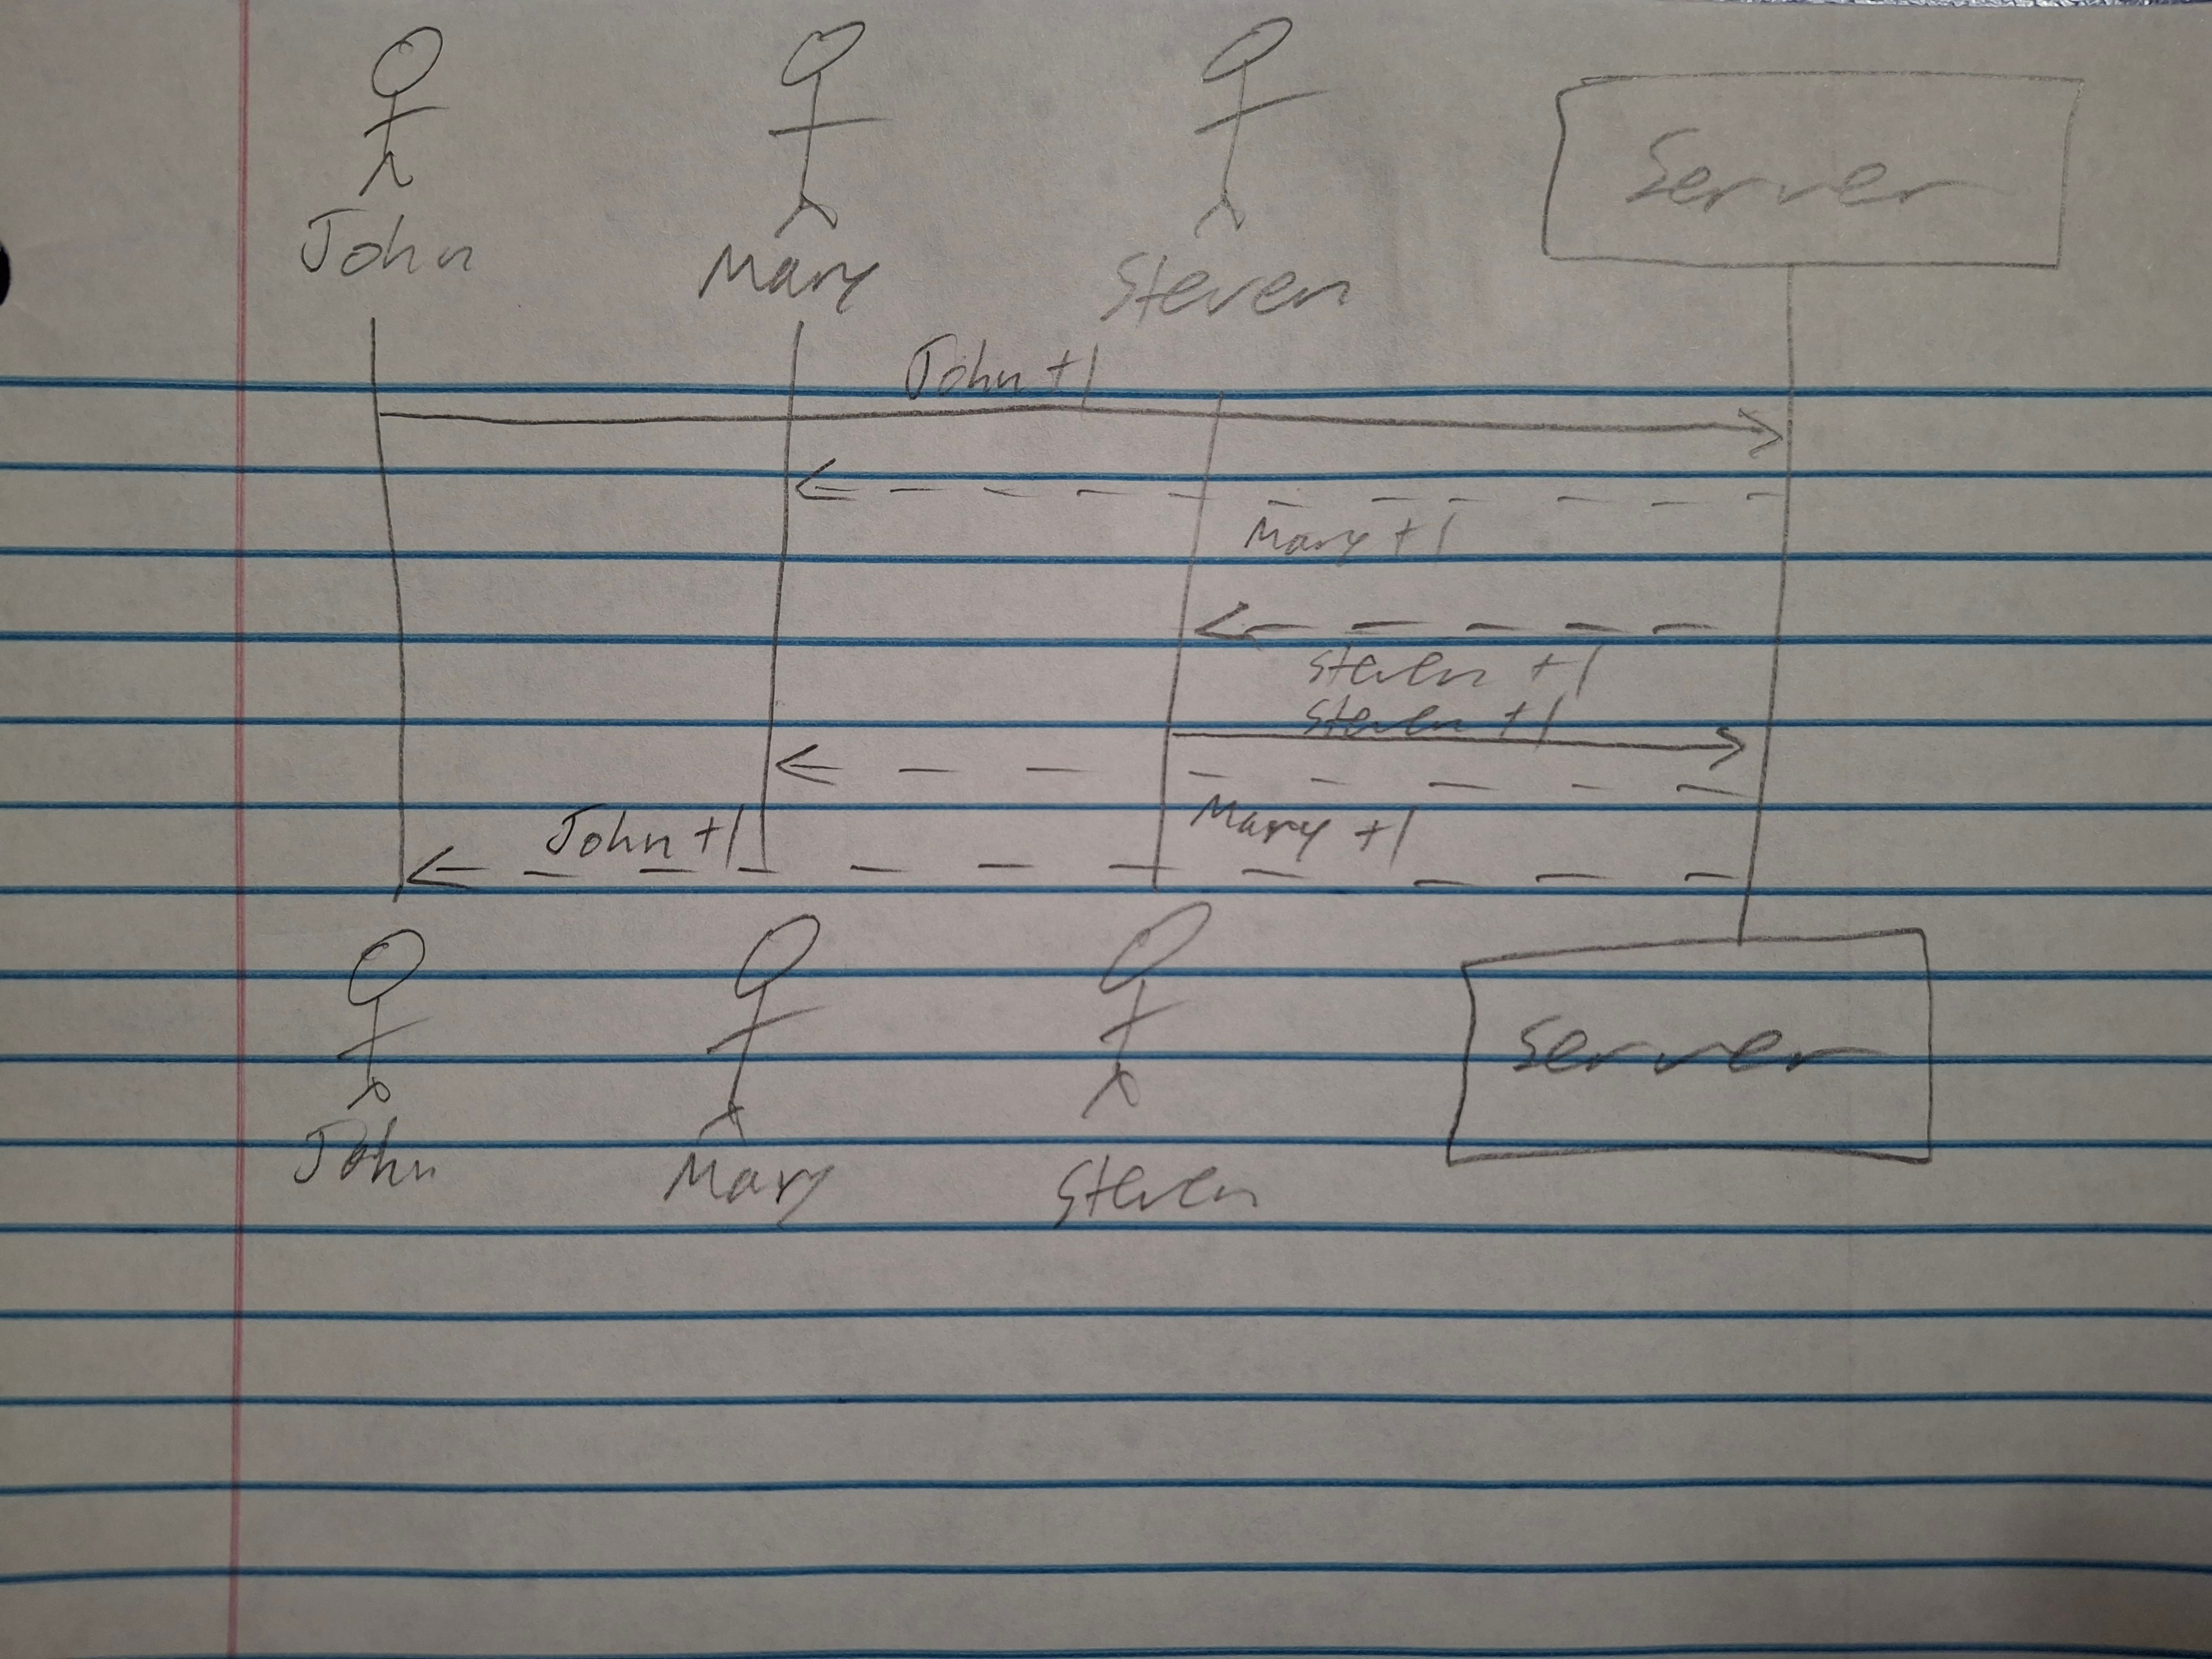 John Mary Steven Server
John +1
Mary +1
Steven +1
Steven +1
Mary +1
John +1
John Mary Steven Server